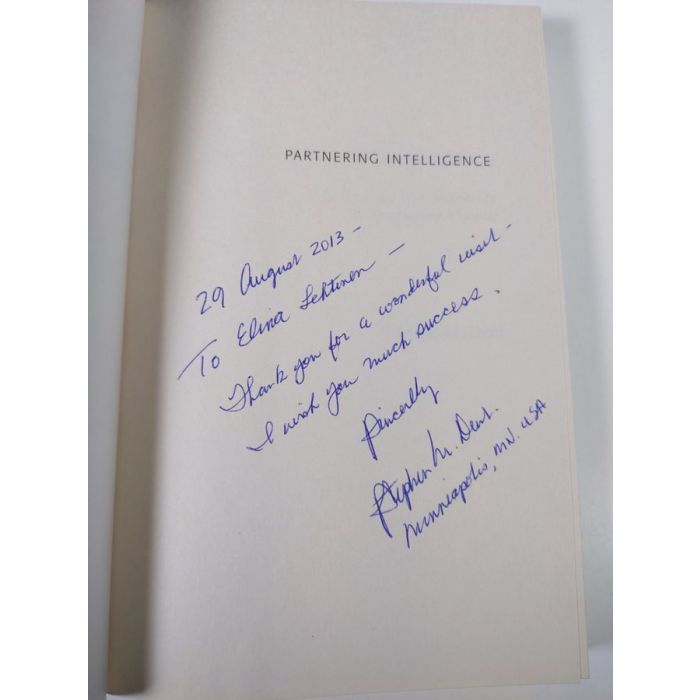 PARTNERING INTELLIGENCE
29 August 2013 -
To Elina Lehtinen -
Thank you for a wonderful visit -
I wish you much success.
Sincerely
Stephen M. Dent.
Minneapolis, MN. USA